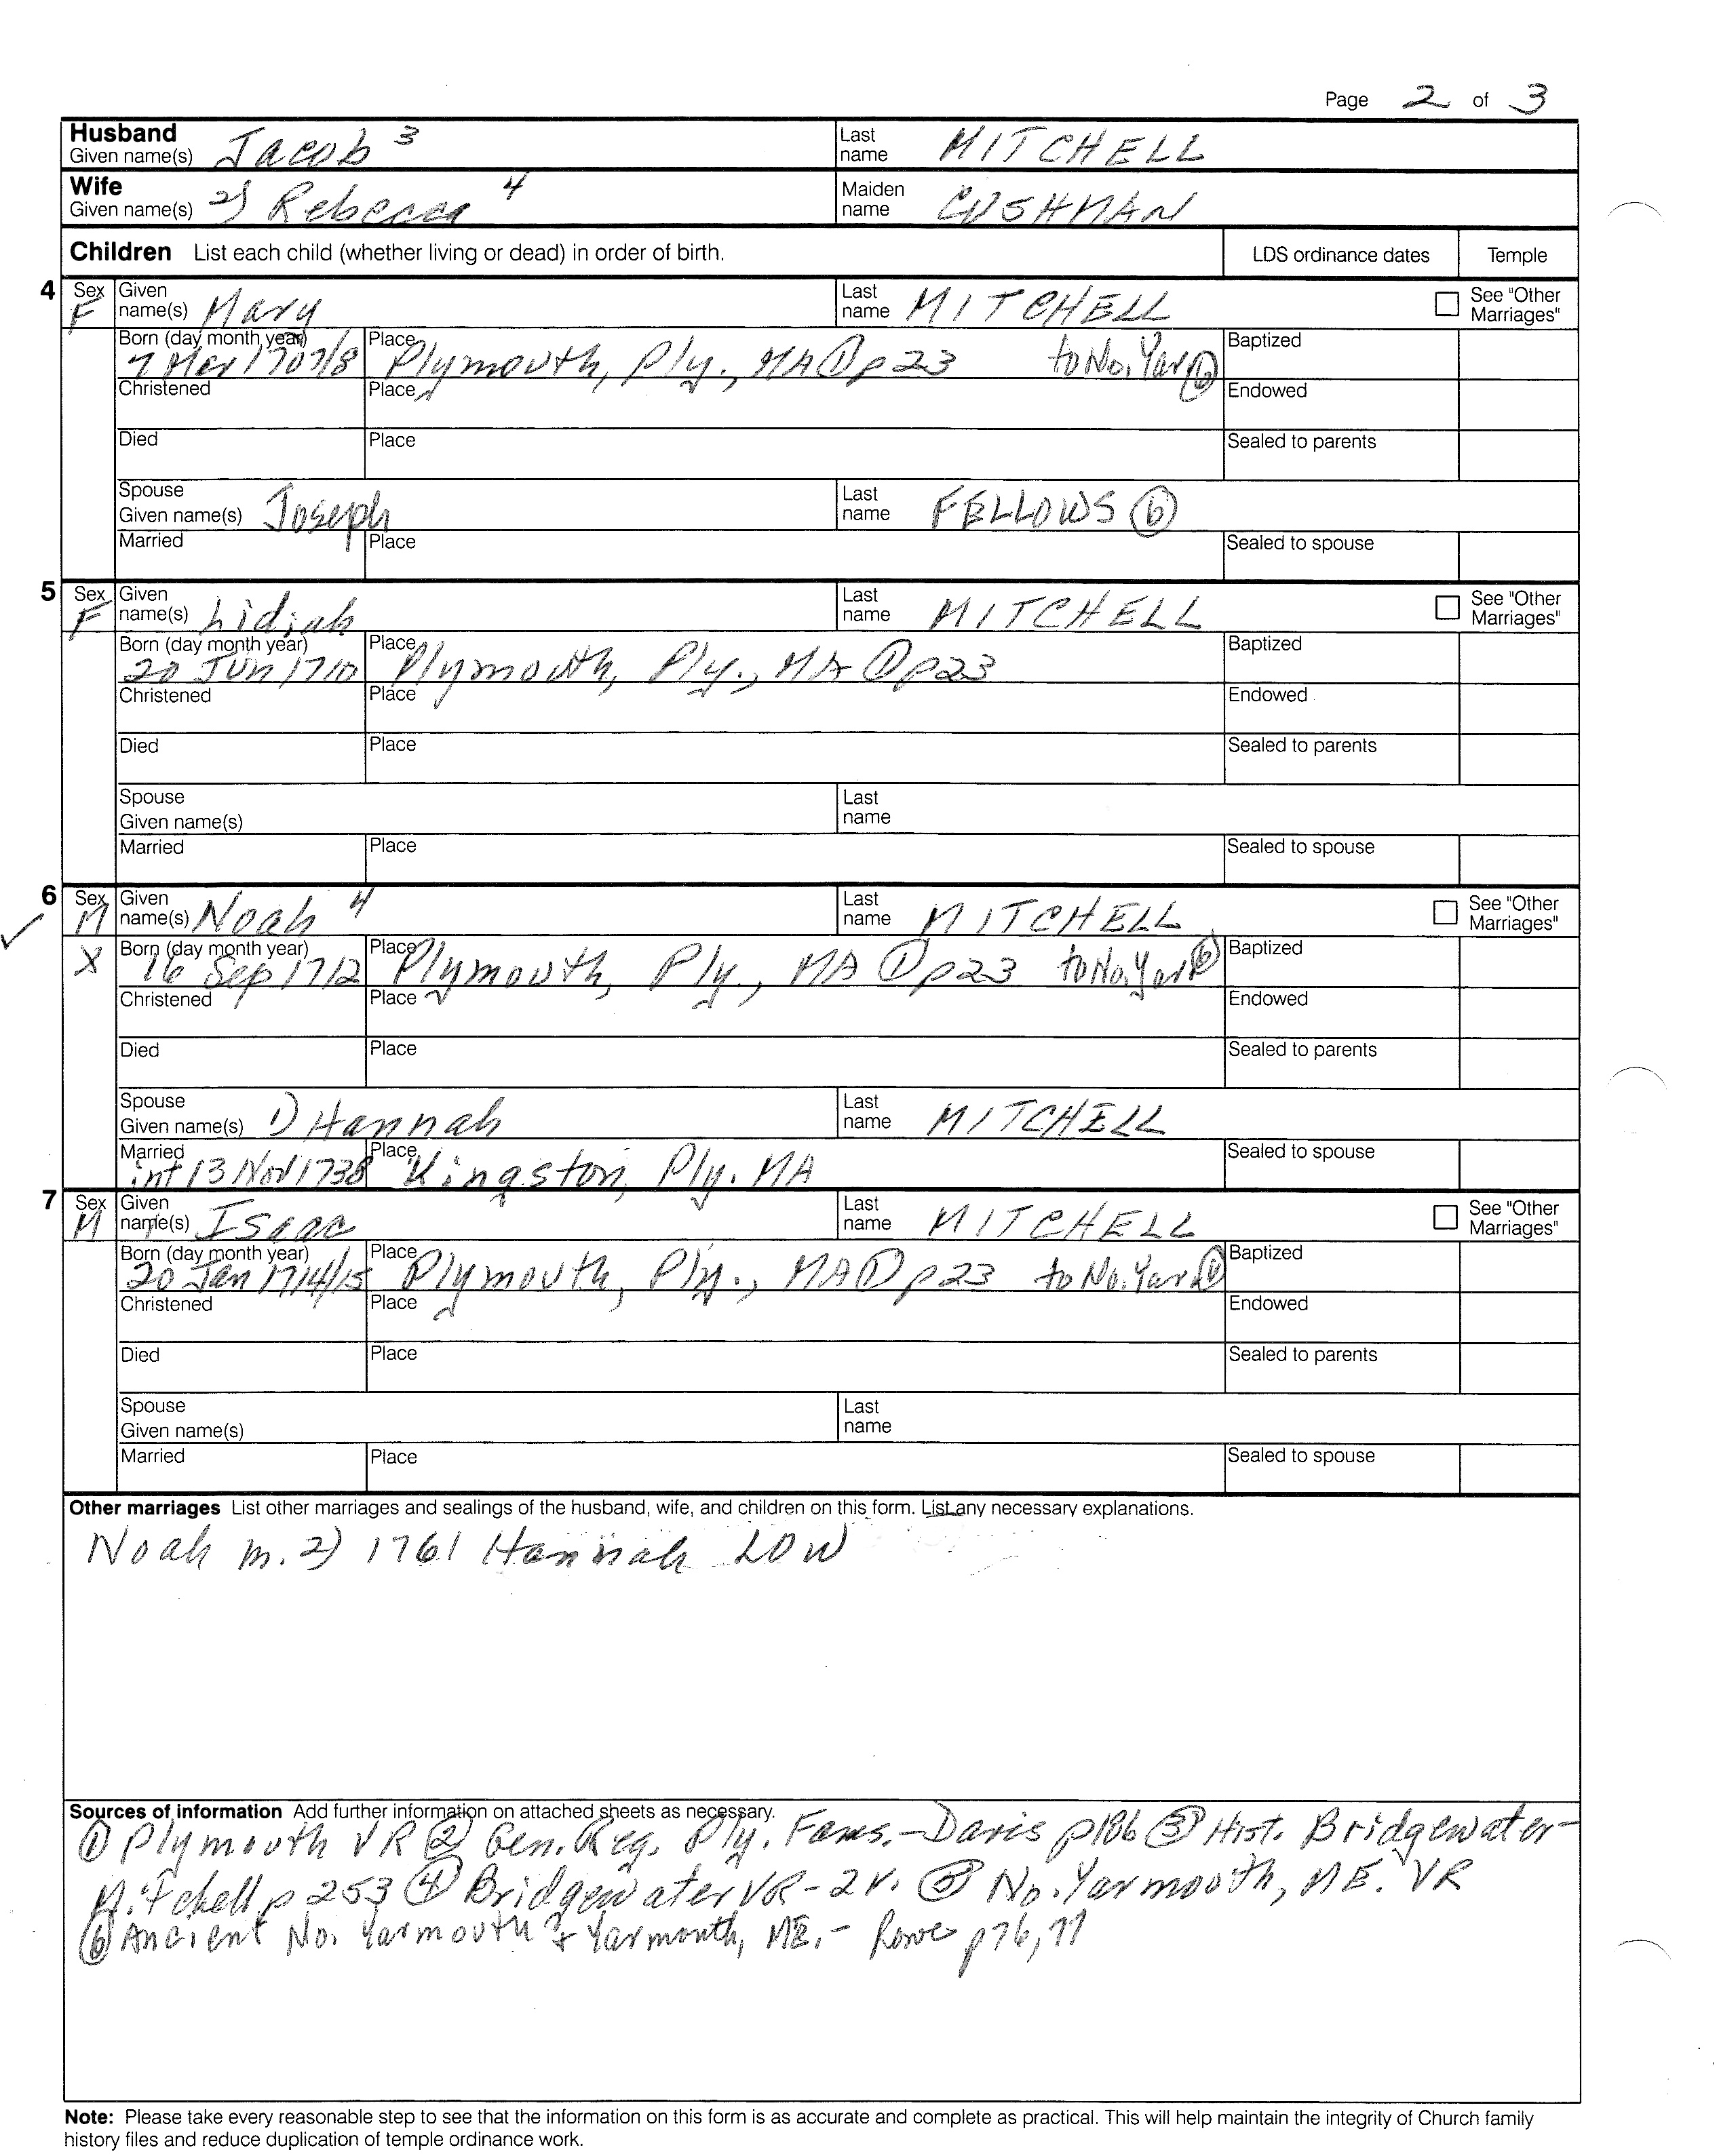 Page 2 of 3
Husband Given name(s) Jacob 3 Last name MITCHELL
Wife Given name(s) 2) Rebecca 4 Maiden name CUSHMAN
Children List each child (whether living or dead) in order of birth. LDS ordinance dates Temple
4 Sex F Given name(s) Mary Last name MITCHELL See "Other Marriages"
Born (day month year) 7 Mar 1707/8 Place Plymouth, Ply., MA ① p23 to No. Yar ⑥ Baptized
Christened Place Endowed
Died Place Sealed to parents
Spouse Given name(s) Joseph Last name FELLOWS ⑥
Married Place Sealed to spouse
5 Sex F Given name(s) Lidiah Last name MITCHELL See "Other Marriages"
Born (day month year) 20 Jun 1710 Place Plymouth, Ply., MA ① p23 Baptized
Christened Place Endowed
Died Place Sealed to parents
Spouse Given name(s) Last name
Married Place Sealed to spouse
6 Sex M Given name(s) Noah 4 Last name MITCHELL See "Other Marriages"
X Born (day month year) 16 Sep 1712 Place Plymouth, Ply., MA ① p23 to No. Yar ⑥ Baptized
Christened Place Endowed
Died Place Sealed to parents
Spouse Given name(s) 1) Hannah Last name MITCHELL
Married int 13 Nov 1738 Place Kingston, Ply. MA Sealed to spouse
7 Sex M Given name(s) Isaac Last name MITCHELL See "Other Marriages"
Born (day month year) 20 Jan 1714/15 Place Plymouth, Ply., MA ① p23 to No. Yar ⑥ Baptized
Christened Place Endowed
Died Place Sealed to parents
Spouse Given name(s) Last name
Married Place Sealed to spouse
Other marriages List other marriages and sealings of the husband, wife, and children on this form. List any necessary explanations.
Noah m. 2) 1761 Hannah LOW
Sources of information Add further information on attached sheets as necessary.
① Plymouth VR ② Gen. Reg. Ply. Fams. - Davis p186 ③ Hist. Bridgewater -
Mitchell p 253 ④ Bridgewater VR - 2 v. ⑤ No. Yarmouth, ME. VR
⑥ Ancient No. Yarmouth & Yarmouth, ME. - Rowe p76, 77
Note: Please take every reasonable step to see that the information on this form is as accurate and complete as practical. This will help maintain the integrity of Church family
history files and reduce duplication of temple ordinance work.